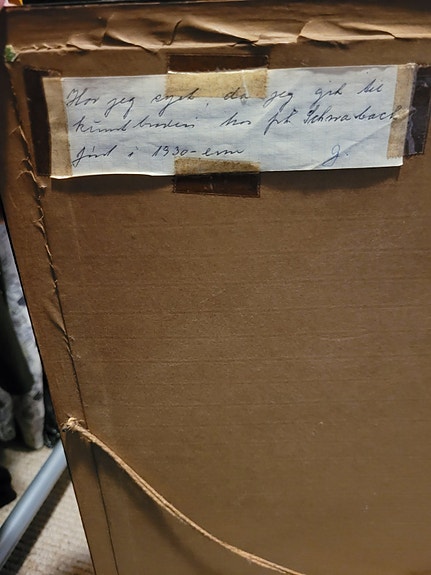 Har jeg syet, da jeg gik til
kunstbroderi hos frk Schwabach
først i 1930-erne J.